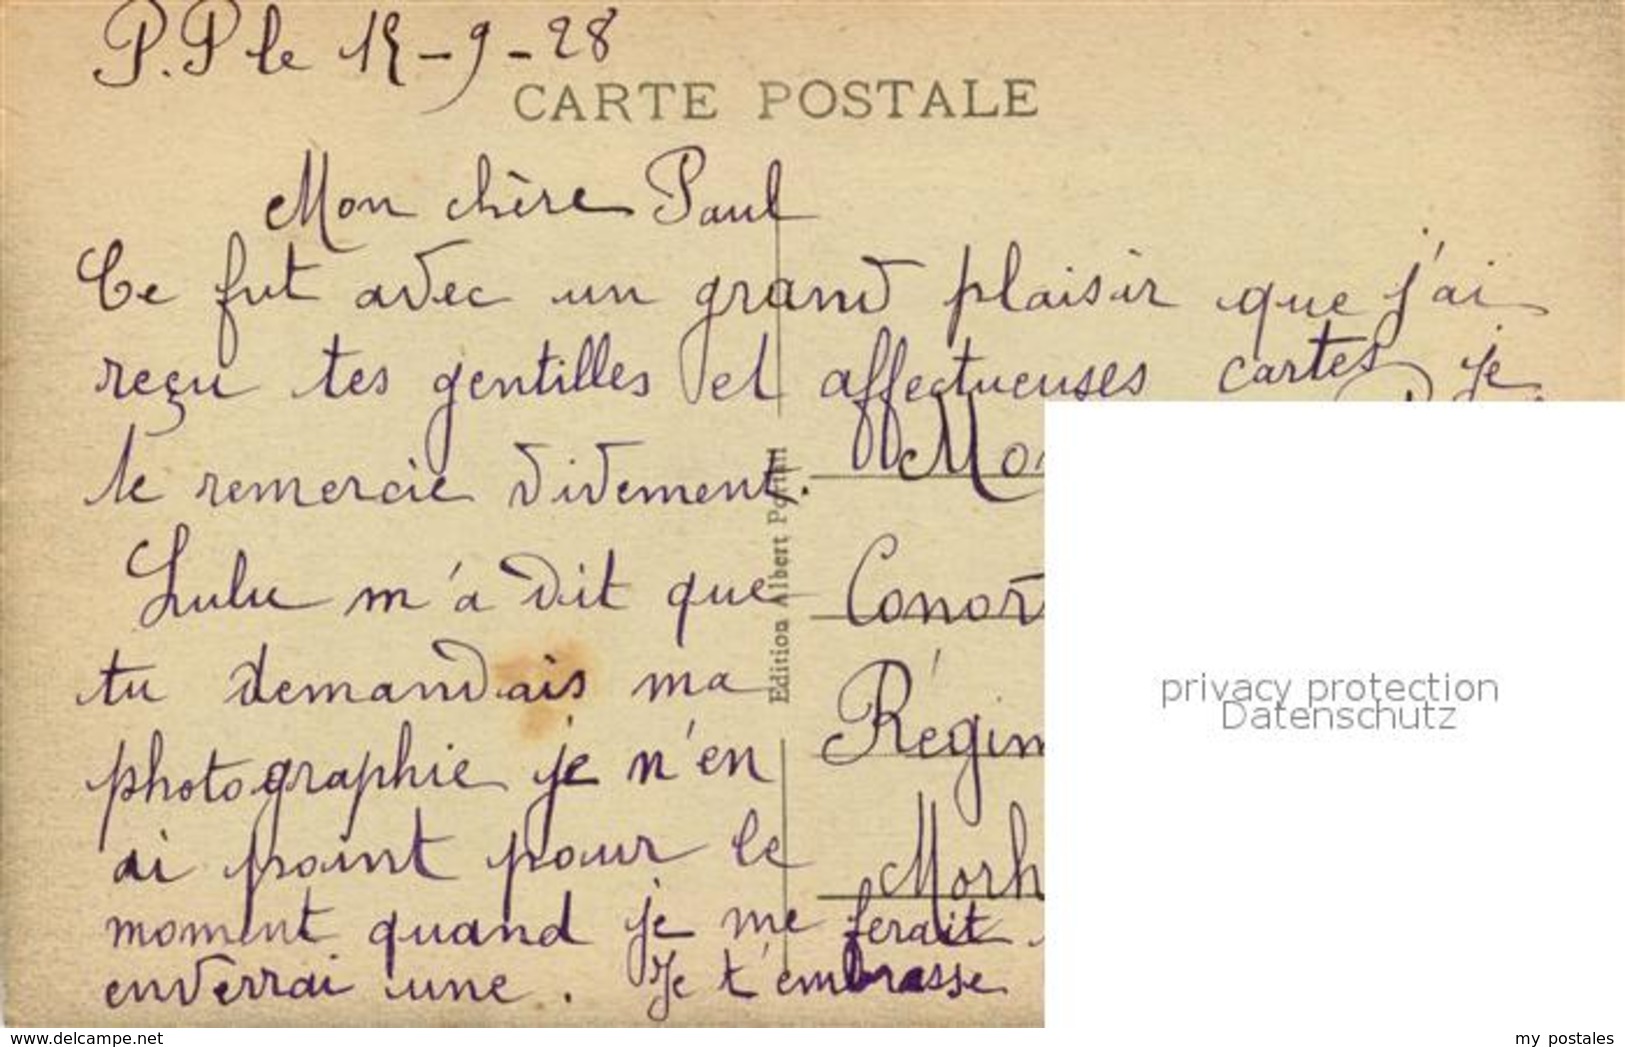 P.P le 15-9-28
CARTE POSTALE
Mon chère Paul
Ce fut avec un grand plaisir que j'ai
reçu tes gentilles et affectueuses cartes je
te remercie vivement.
Lulu m'a dit que
tu demandais ma
photographie je n'en
ai point pour le
moment quand je me ferait
enverrai une. Je t'embrasse
Edition Albert
Conor
Régim
Morh
privacy protection
Datenschutz
www.delcampe.net
my postales